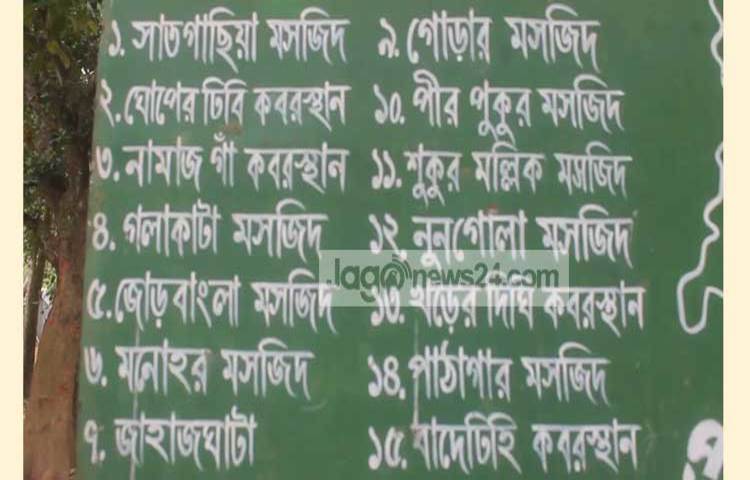 ১. সাতগাছিয়া মসজিদ
২. ঘোপের ঢিবি কবরস্থান
৩. নামাজ গাঁ কবরস্থান
৪. গলাকাটা মসজিদ
৫. জোড়বাংলা মসজিদ
৬. মনোহর মসজিদ
৭. জাহাজঘাটা
৯. গোড়ার মসজিদ
১০. পীর পুকুর মসজিদ
১১. শুকুর মল্লিক মসজিদ
১২. নুনগোলা মসজিদ
১৩. খড়ের দিঘি কবরস্থান
১৪. পাঠাগার মসজিদ
১৫. বাদেটিহি কবরস্থান
Jagonews24.com